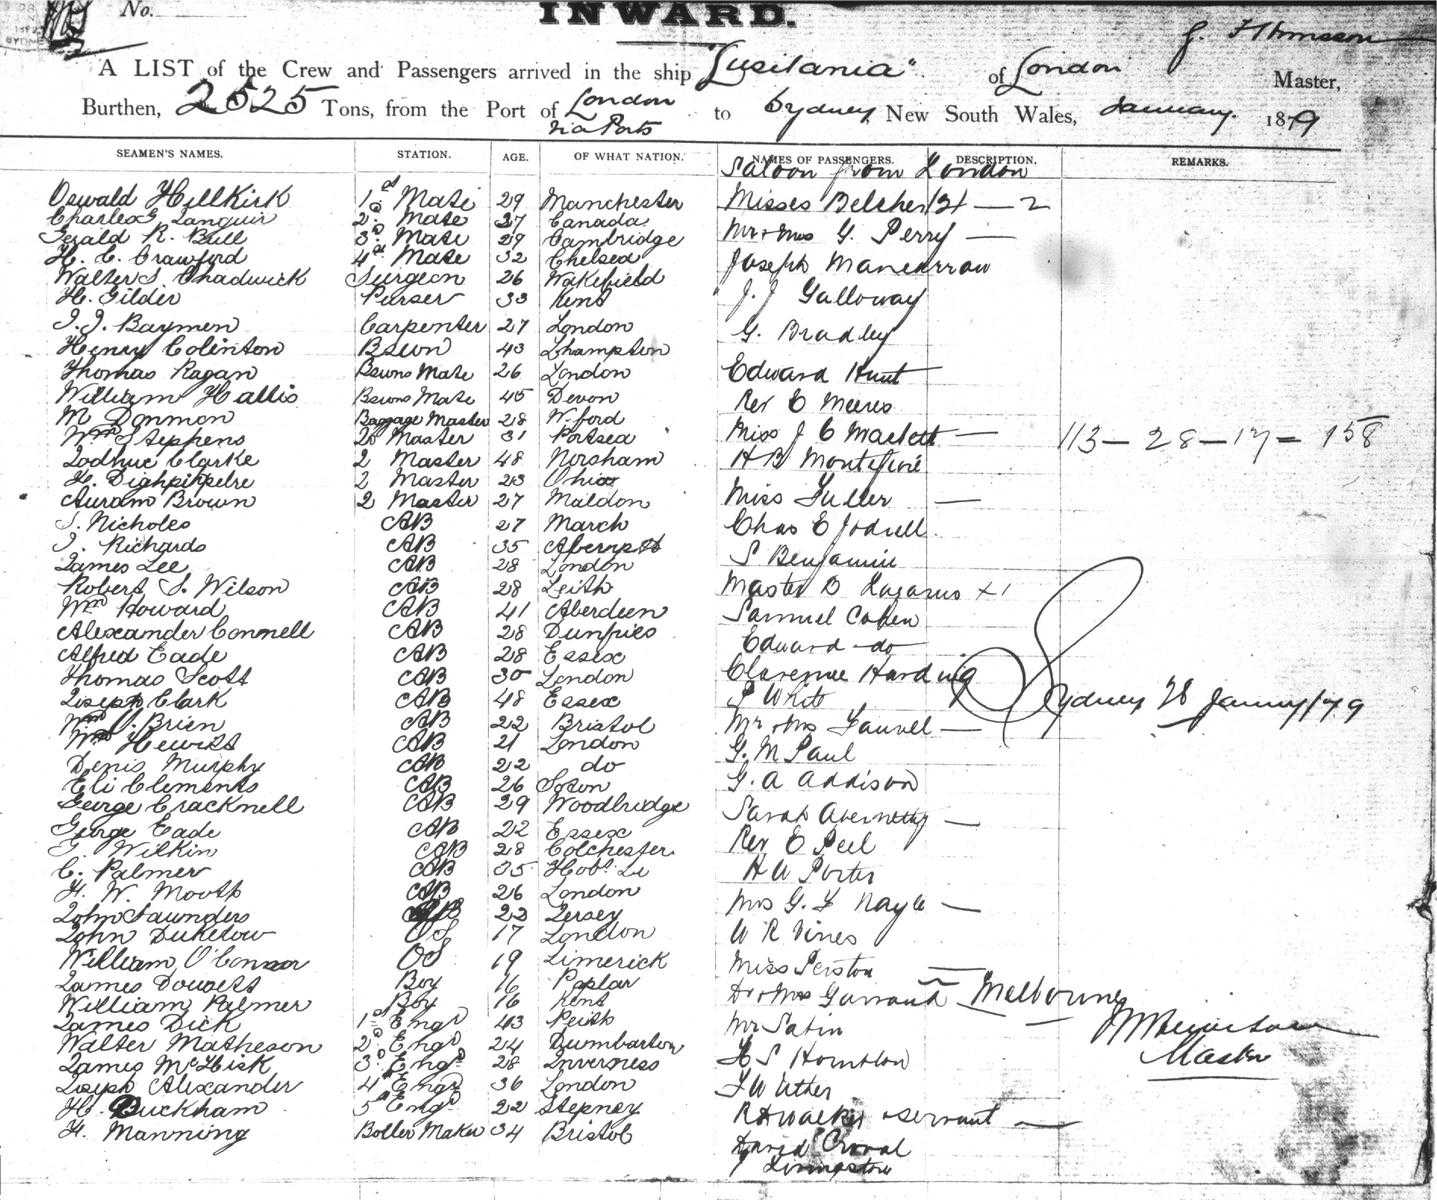 No.
INWARD.
A LIST of the Crew and Passengers arrived in the ship "Lusitania" of London Master,
Burthen, 2525 Tons, from the Port of London via Ports to Sydney New South Wales, January 1879
SEAMEN'S NAMES. STATION. AGE. OF WHAT NATION. NAMES OF PASSENGERS. DESCRIPTION. REMARKS.
Saloon from London
Oswald Hillkirk 1st Mate 29 Manchester Misses Belcher
Charles G. 2d Mate 37 Canada
Gerald R. Bull 3d Mate 29 Cambridge Mr & Mrs G. Perry —
H. C. Crawford 4th Mate 32 Chelsea
Walter S. Chadwick Surgeon 26 Wakefield Joseph
H. Gilder Purser 33 Kent J. J Galloway
J. J. Baymen Carpenter 27 London G. Bradley
Henry Colinton Bswn 43 Lhampton
Thomas Ragan Bswns Mate 26 London Edward Hunt
William Hallis Bswns Mate 45 Devon Rev E Meeres
M Donmon Baggage Master 28 W.ford
Wm Stephens 2d Master 31 Portsea Miss J C — 113 — 28 — 17 = 158
Clarke 2 Master 48 Horsham H B Montefiore
H. 2 Master 23 Ohio
Brown 2 Master 27 Maldon Miss Fuller —
J. Nicholes AB 27 March Chas E Jodrell
J. Richards AB 35 S Benjamin
James Lee AB 28 London
Robert S. Wilson AB 28 Leith Master D Lazarus x 1
Wm Howard AB 41 Aberdeen Samuel Cohen
Alexander Connell AB 28 Dumfries Edward do
Alfred Eade AB 28 Essex
Thomas Scott AB 30 London Clarence Harding
Joseph Clark AB 48 Essex White Sydney 28 January/79
Wm O. Brien AB 22 Bristol Mr & Mrs —
Wm Hewitt AB 21 London G. M Paul
Denis Murphy AB 22 do
Eli Clements AB 26 Soton G. A Addison
George Cracknell AB 29 Woodbridge Sarah Abernethy —
George Eade AB 22 Essex
Wilkin AB 28 Colchester Rev E Peel
C. Palmer AB 35 H A Porter
H. W. AB 26 London Mrs G. F Nayle —
John Saunders AB 22 Jersey
John OS 17 London W R Vines
William O'Connor OS 19 Limerick Miss
James Dowett Boy 16 Poplar Dr & Mrs Garrand — Melbourne
William Palmer Boy 16 Kent
James Dick 1st Engr 43 Perth Mr Satin
Walter Matheson 2d Engr 24 Dumbarton Master
James 3d Engr 28 Inverness
Joseph Alexander 4th Engr 36 London
H. Duckham 5th Engr 22 Stepney R H Walker & servant —
H. Manning Boiler Maker 34 Bristol David
Livingstow